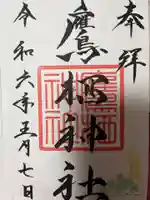 奉拝
鷹栖神社
令和六年五月七日